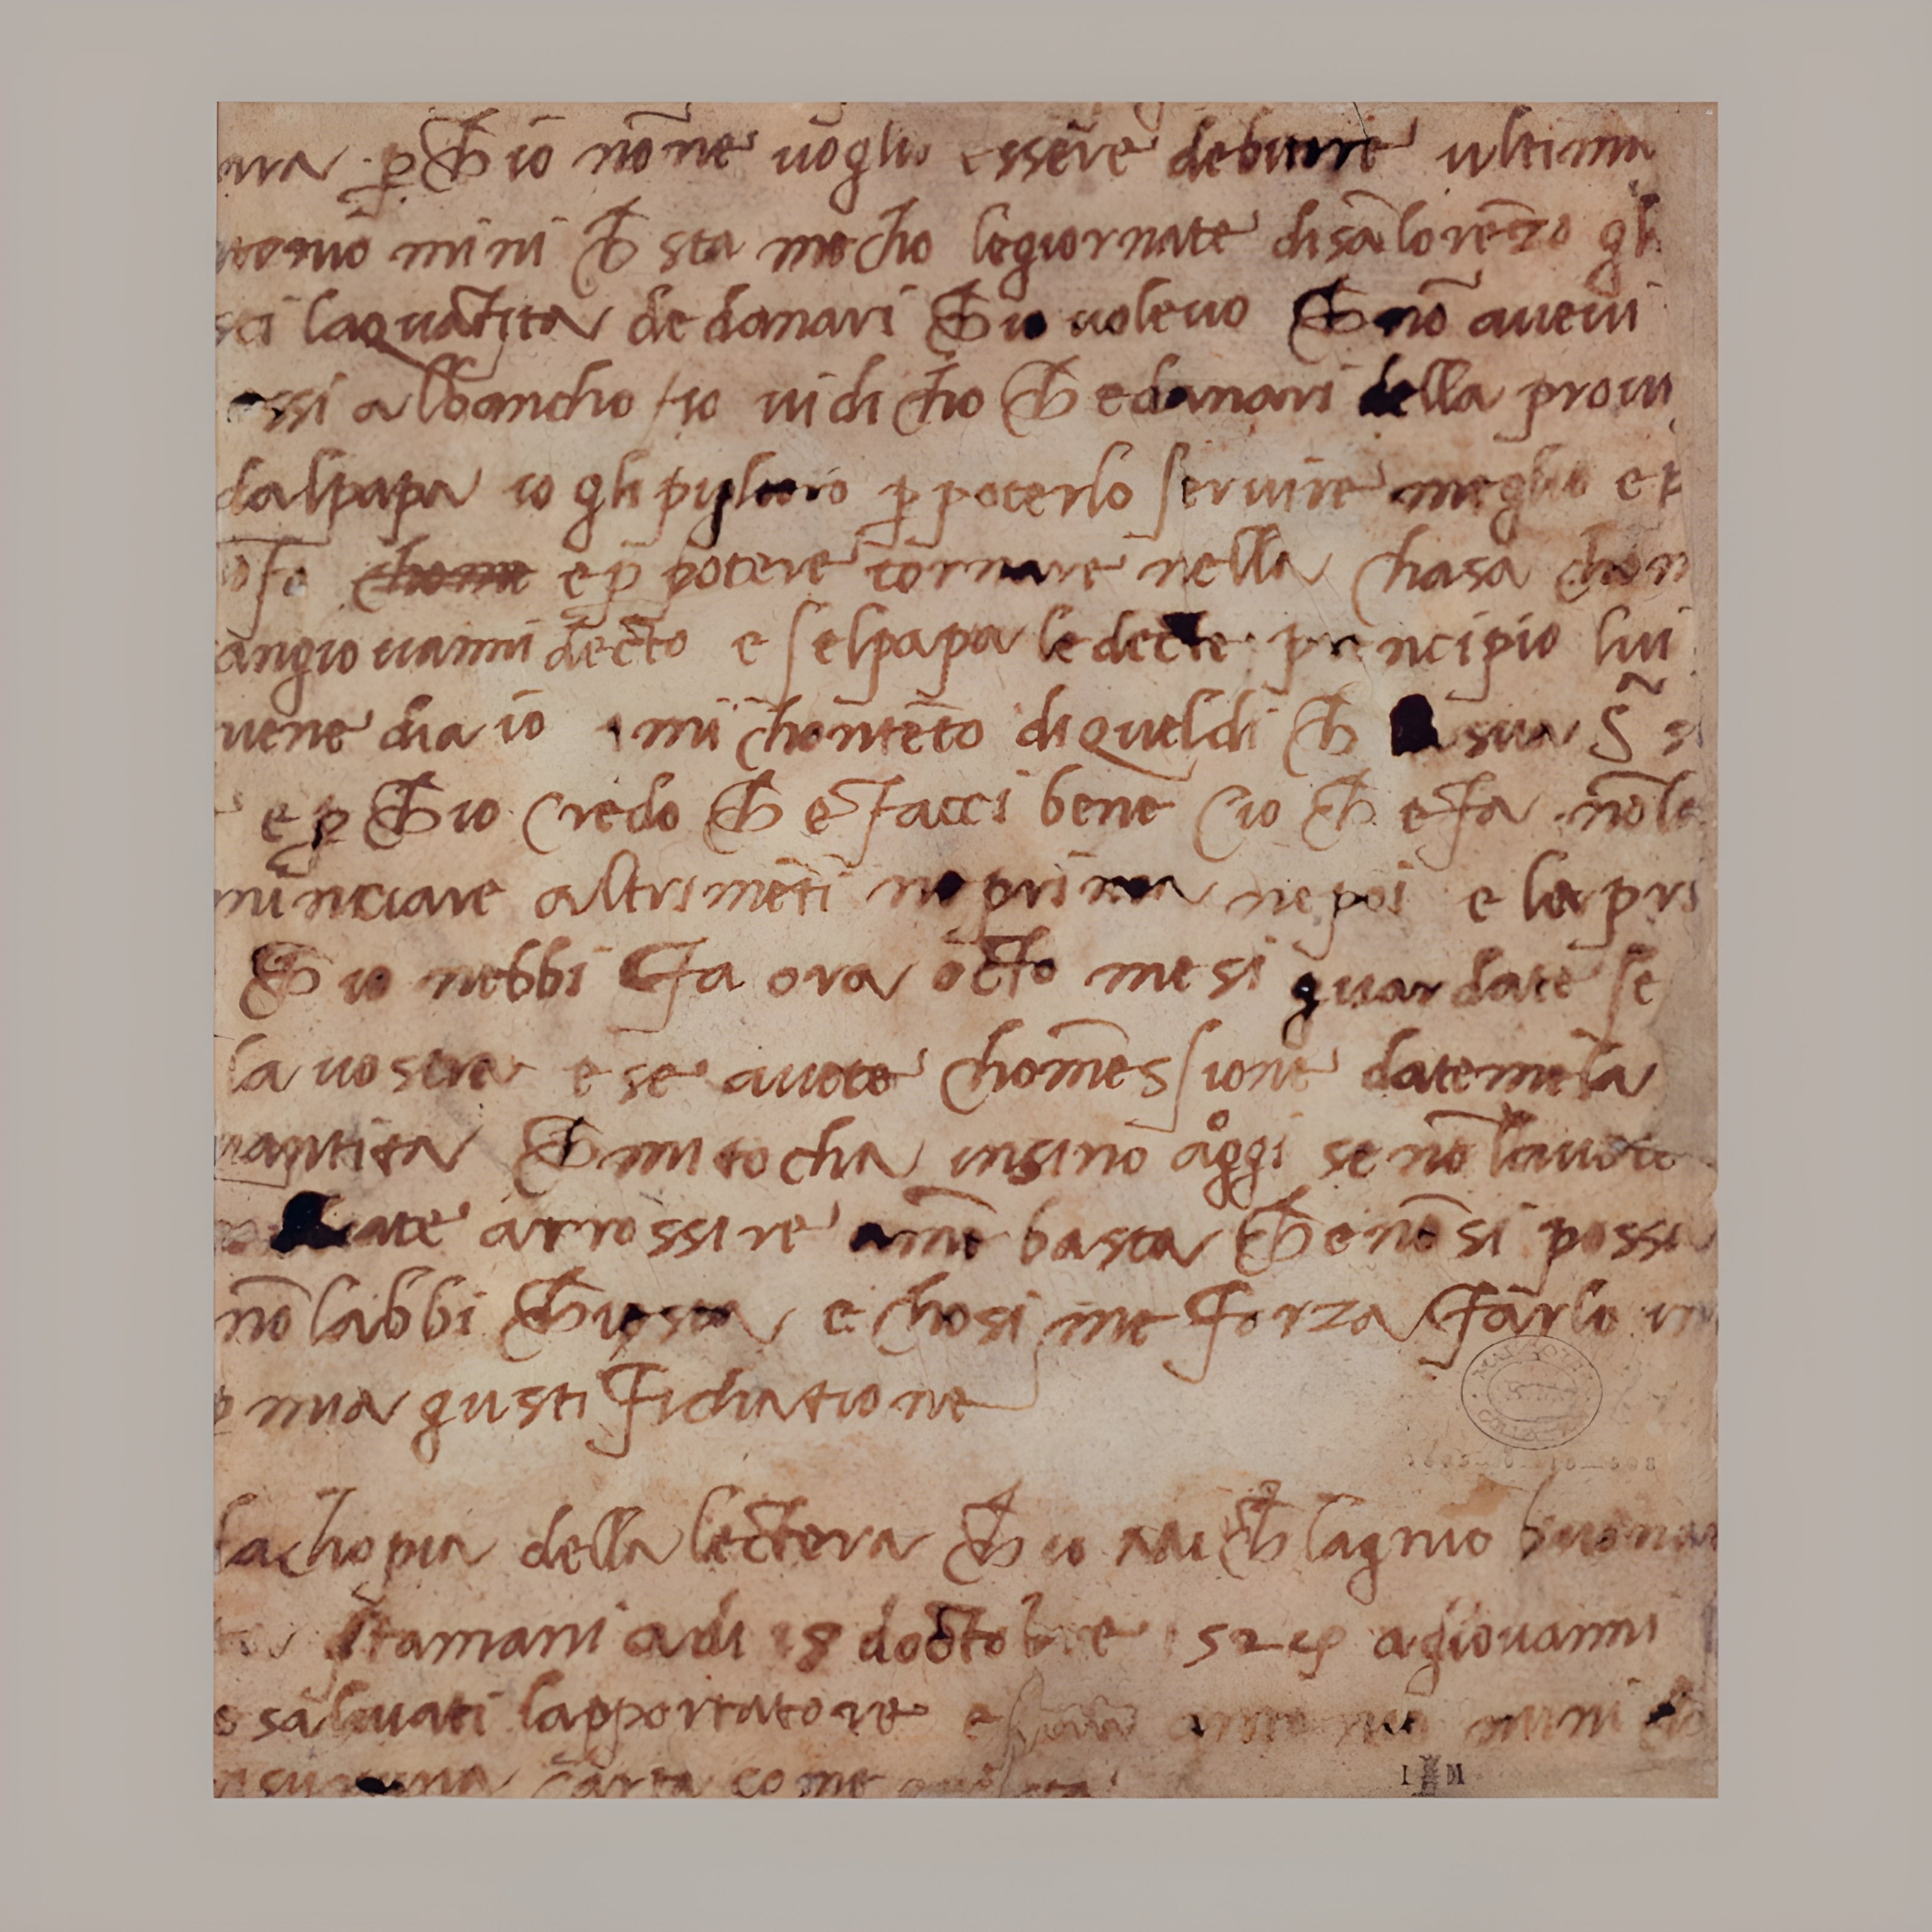 p̱ ch io nō ne voglio essere debitore ultima
mini ch sta mecho le giornate di sā lorēzo gli
laquātita de danari ch io volevo ch nō avevi
essi al bancho io vi dicho ch e danari della provi
dal papa io gli piglierò p̱ poterlo servire meglio e p̱
chome e p̱ potere tornare nella chasa chon
angiovanni decto e sel papa le decte principio lui
vene dia io mi chontēto di quel di ch a sua S̃
e p̱ ch io credo ch e facci bene cio ch e fa nō le
nunciare altrimēti ne prima ne poi e la pri
ch io nebbi fa ora octo mesi guardate se
la vostra e se avete chomessione datemela
uantita ch mi tocha insino aoggi se nō lavete
arrossire a me basta ch e nō si possa
nō labbi chiesta e chosi me forza farlo
mia gustifichatione
la chopia della lectera ch io Michelagnio buonar
stamani adi 18 doctobre 1524 a giovanni
salviati lapportatore e antonio mini
una carta come
I M